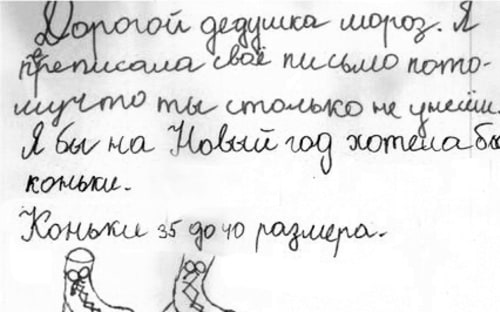 Дорогой дедушка мороз. Я
переписала своё письмо пото-
мучто ты столько не унесёшь.
Я бы на Новый год хотела бы
коньки.
Коньки 35 до 40 размера.